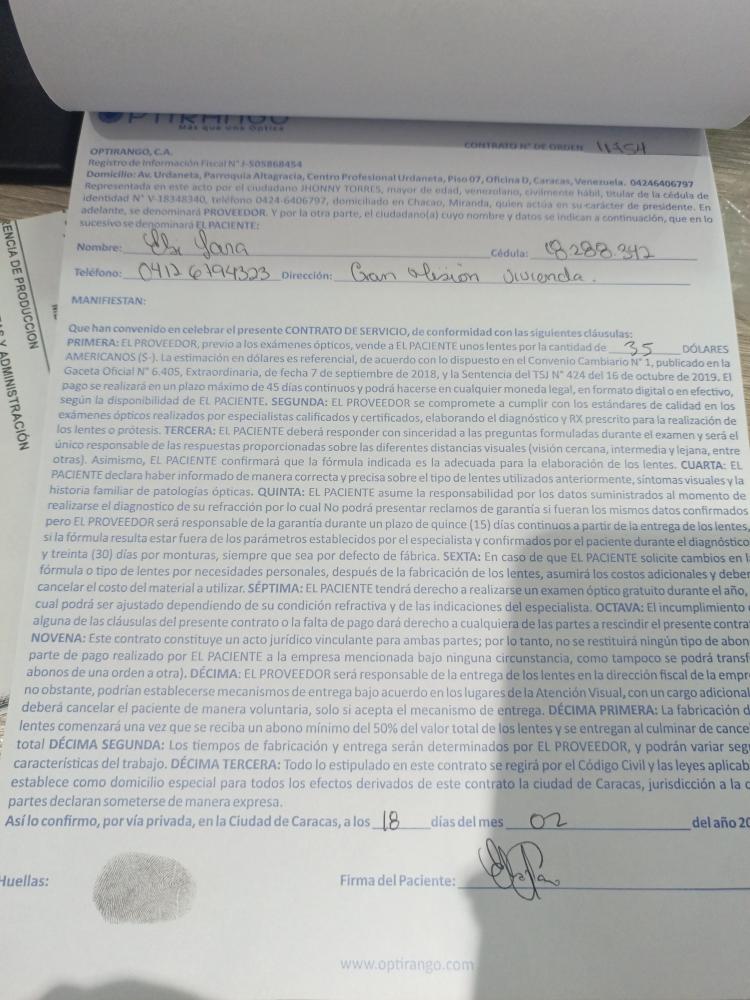 OPTIRANGO
Más que una Óptica
CONTRATO N° DE ORDEN 11454
OPTIRANGO, C.A.
Registro de Información Fiscal N° J-505868454
Domicilio: Av. Urdaneta, Parroquia Altagracia, Centro Profesional Urdaneta, Piso 07, Oficina D, Caracas, Venezuela. 04246406797
Representada en este acto por el ciudadano JHONNY TORRES, mayor de edad, venezolano, civilmente hábil, titular de la cédula de
identidad N° V-18348340, teléfono 0424-6406797, domiciliado en Chacao, Miranda, quien actúa en su carácter de presidente. En
adelante, se denominará PROVEEDOR. Y por la otra parte, el ciudadano(a) cuyo nombre y datos se indican a continuación, que en lo
sucesivo se denominará EL PACIENTE:
Nombre: Elsi Jara Cédula: 18.288.342
Teléfono: 0412 6794323 Dirección: Gran Misión vivienda.
MANIFIESTAN:
Que han convenido en celebrar el presente CONTRATO DE SERVICIO, de conformidad con las siguientes cláusulas:
PRIMERA: EL PROVEEDOR, previo a los exámenes ópticos, vende a EL PACIENTE unos lentes por la cantidad de 35 DÓLARES
AMERICANOS (S-). La estimación en dólares es referencial, de acuerdo con lo dispuesto en el Convenio Cambiario N° 1, publicado en la
Gaceta Oficial N° 6.405, Extraordinaria, de fecha 7 de septiembre de 2018, y la Sentencia del TSJ N° 424 del 16 de octubre de 2019. El
pago se realizará en un plazo máximo de 45 días continuos y podrá hacerse en cualquier moneda legal, en formato digital o en efectivo,
según la disponibilidad de EL PACIENTE. SEGUNDA: EL PROVEEDOR se compromete a cumplir con los estándares de calidad en los
exámenes ópticos realizados por especialistas calificados y certificados, elaborando el diagnóstico y RX prescrito para la realización de
los lentes o prótesis. TERCERA: EL PACIENTE deberá responder con sinceridad a las preguntas formuladas durante el examen y será el
único responsable de las respuestas proporcionadas sobre las diferentes distancias visuales (visión cercana, intermedia y lejana, entre
otras). Asimismo, EL PACIENTE confirmará que la fórmula indicada es la adecuada para la elaboración de los lentes. CUARTA: EL
PACIENTE declara haber informado de manera correcta y precisa sobre el tipo de lentes utilizados anteriormente, síntomas visuales y la
historia familiar de patologías ópticas. QUINTA: EL PACIENTE asume la responsabilidad por los datos suministrados al momento de
realizarse el diagnostico de su refracción por lo cual No podrá presentar reclamos de garantía si fueran los mismos datos confirmados
pero EL PROVEEDOR será responsable de la garantía durante un plazo de quince (15) días continuos a partir de la entrega de los lentes,
si la fórmula resulta estar fuera de los parámetros establecidos por el especialista y confirmados por el paciente durante el diagnóstico
y treinta (30) días por monturas, siempre que sea por defecto de fábrica. SEXTA: En caso de que EL PACIENTE solicite cambios en l
fórmula o tipo de lentes por necesidades personales, después de la fabricación de los lentes, asumirá los costos adicionales y deber
cancelar el costo del material a utilizar. SÉPTIMA: EL PACIENTE tendrá derecho a realizarse un examen óptico gratuito durante el año,
cual podrá ser ajustado dependiendo de su condición refractiva y de las indicaciones del especialista. OCTAVA: El incumplimiento
alguna de las cláusulas del presente contrato o la falta de pago dará derecho a cualquiera de las partes a rescindir el presente contra
NOVENA: Este contrato constituye un acto jurídico vinculante para ambas partes; por lo tanto, no se restituirá ningún tipo de abon
parte de pago realizado por EL PACIENTE a la empresa mencionada bajo ninguna circunstancia, como tampoco se podrá transf
abonos de una orden a otra). DÉCIMA: EL PROVEEDOR será responsable de la entrega de los lentes en la dirección fiscal de la empr
no obstante, podrían establecerse mecanismos de entrega bajo acuerdo en los lugares de la Atención Visual, con un cargo adicional
deberá cancelar el paciente de manera voluntaria, solo si acepta el mecanismo de entrega. DÉCIMA PRIMERA: La fabricación d
lentes comenzará una vez que se reciba un abono mínimo del 50% del valor total de los lentes y se entregan al culminar de cance
total DÉCIMA SEGUNDA: Los tiempos de fabricación y entrega serán determinados por EL PROVEEDOR, y podrán variar seg
características del trabajo. DÉCIMA TERCERA: Todo lo estipulado en este contrato se regirá por el Código Civil y las leyes aplicab
establece como domicilio especial para todos los efectos derivados de este contrato la ciudad de Caracas, jurisdicción a la c
partes declaran someterse de manera expresa.
Así lo confirmo, por vía privada, en la Ciudad de Caracas, a los 18 días del mes 02 del año 20
Huellas: Firma del Paciente:
www.optirango.com
ENCIA DE PRODUCCION
Y ADMINISTRACIÓN